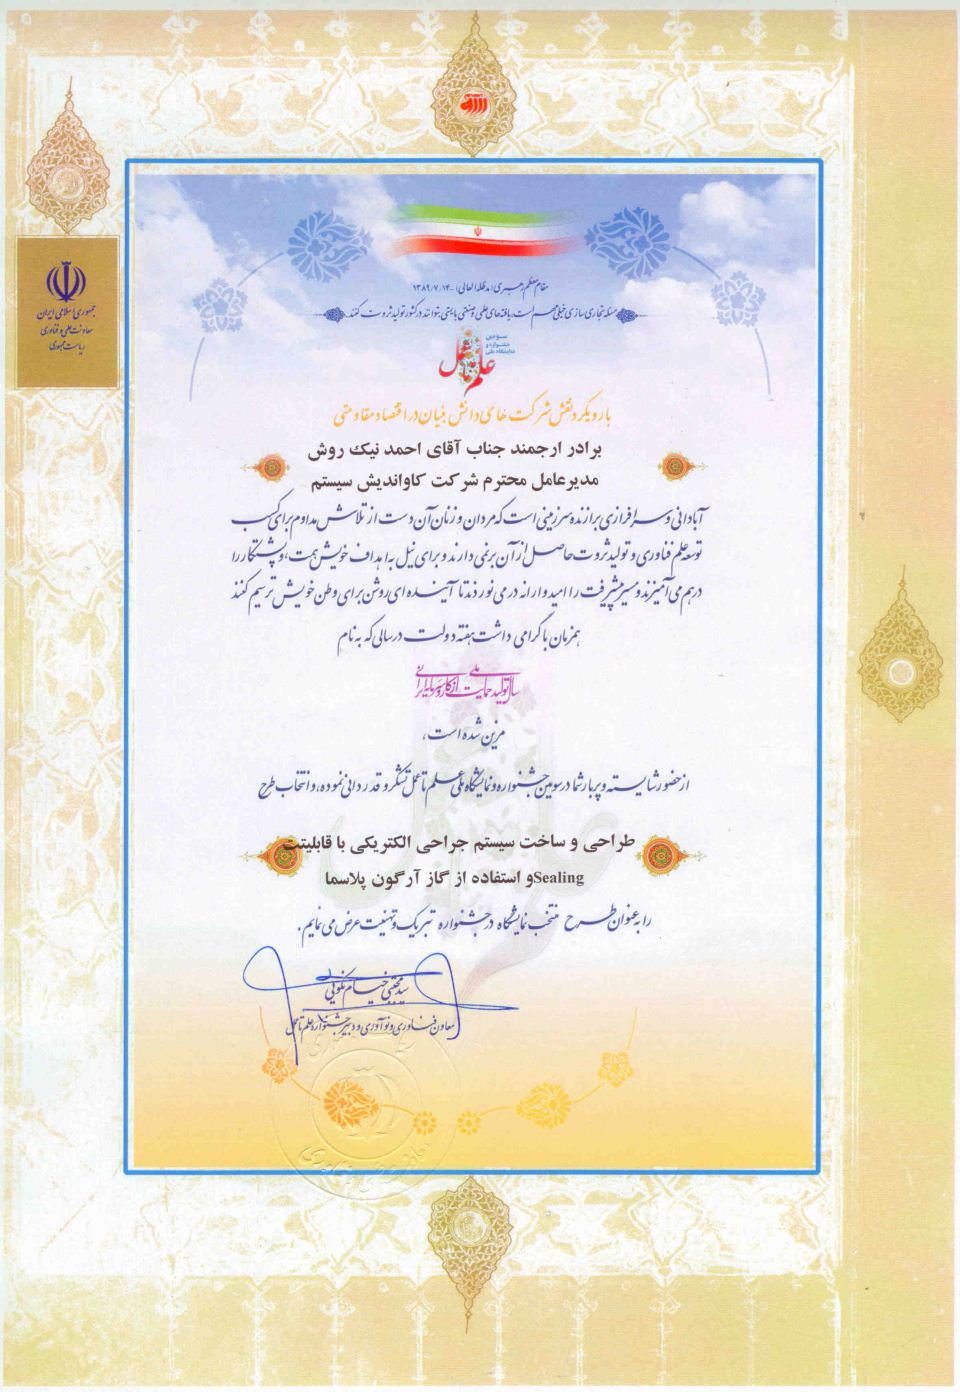 جمهوری اسلامی ایران
معاونت علمی و فناوری
ریاست جمهوری
مقام معظم رهبری (مدظله العالی) - ۱۳۸۹/۷/۱۴
مسئله تجاری سازی خیلی مهم است، یافته های علمی و صنعتی بایستی بتوانند در کشور تولید ثروت کنند.
سومین
جشنواره و
نمایشگاه ملی
علم تا عمل
با رویکرد نقش شرکت های دانش بنیان در اقتصاد مقاومتی
برادر ارجمند جناب آقای احمد نیک روش
مدیرعامل محترم شرکت کاواندیش سیستم
آبادانی و سرافرازی برازنده سرزمینی است که مردان و زنان آن دست از تلاش مداوم برای کسب
توسعه علم فناوری و تولید ثروت حاصل از آن برنمی دارند و برای نیل به اهداف خویش همت، و پشتکار را
درهم می آمیزند و مسیر پیشرفت را امیدوارانه در می نوردند تا آینده ای روشن برای وطن خویش ترسیم کنند
همزمان با گرامی داشت هفته دولت در سالی که به نام
سال تولید ملی حمایت از کار و سرمایه ایرانی
مزین شده است،
از حضور شایسته و پربار شما در سومین جشنواره و نمایشگاه ملی علم تا عمل تشکر و قدردانی نموده، و انتخاب طرح
طراحی و ساخت سیستم جراحی الکتریکی با قابلیتت
Sealingو استفاده از گاز آرگون پلاسما
را به عنوان طرح منتخب نمایشگاه در جشنواره تبریک و تهنیت عرض می نمایم.
سید مجتبی خیام نکویی
معاون فناوری و نوآوری و دبیر جشنواره علم تا عمل